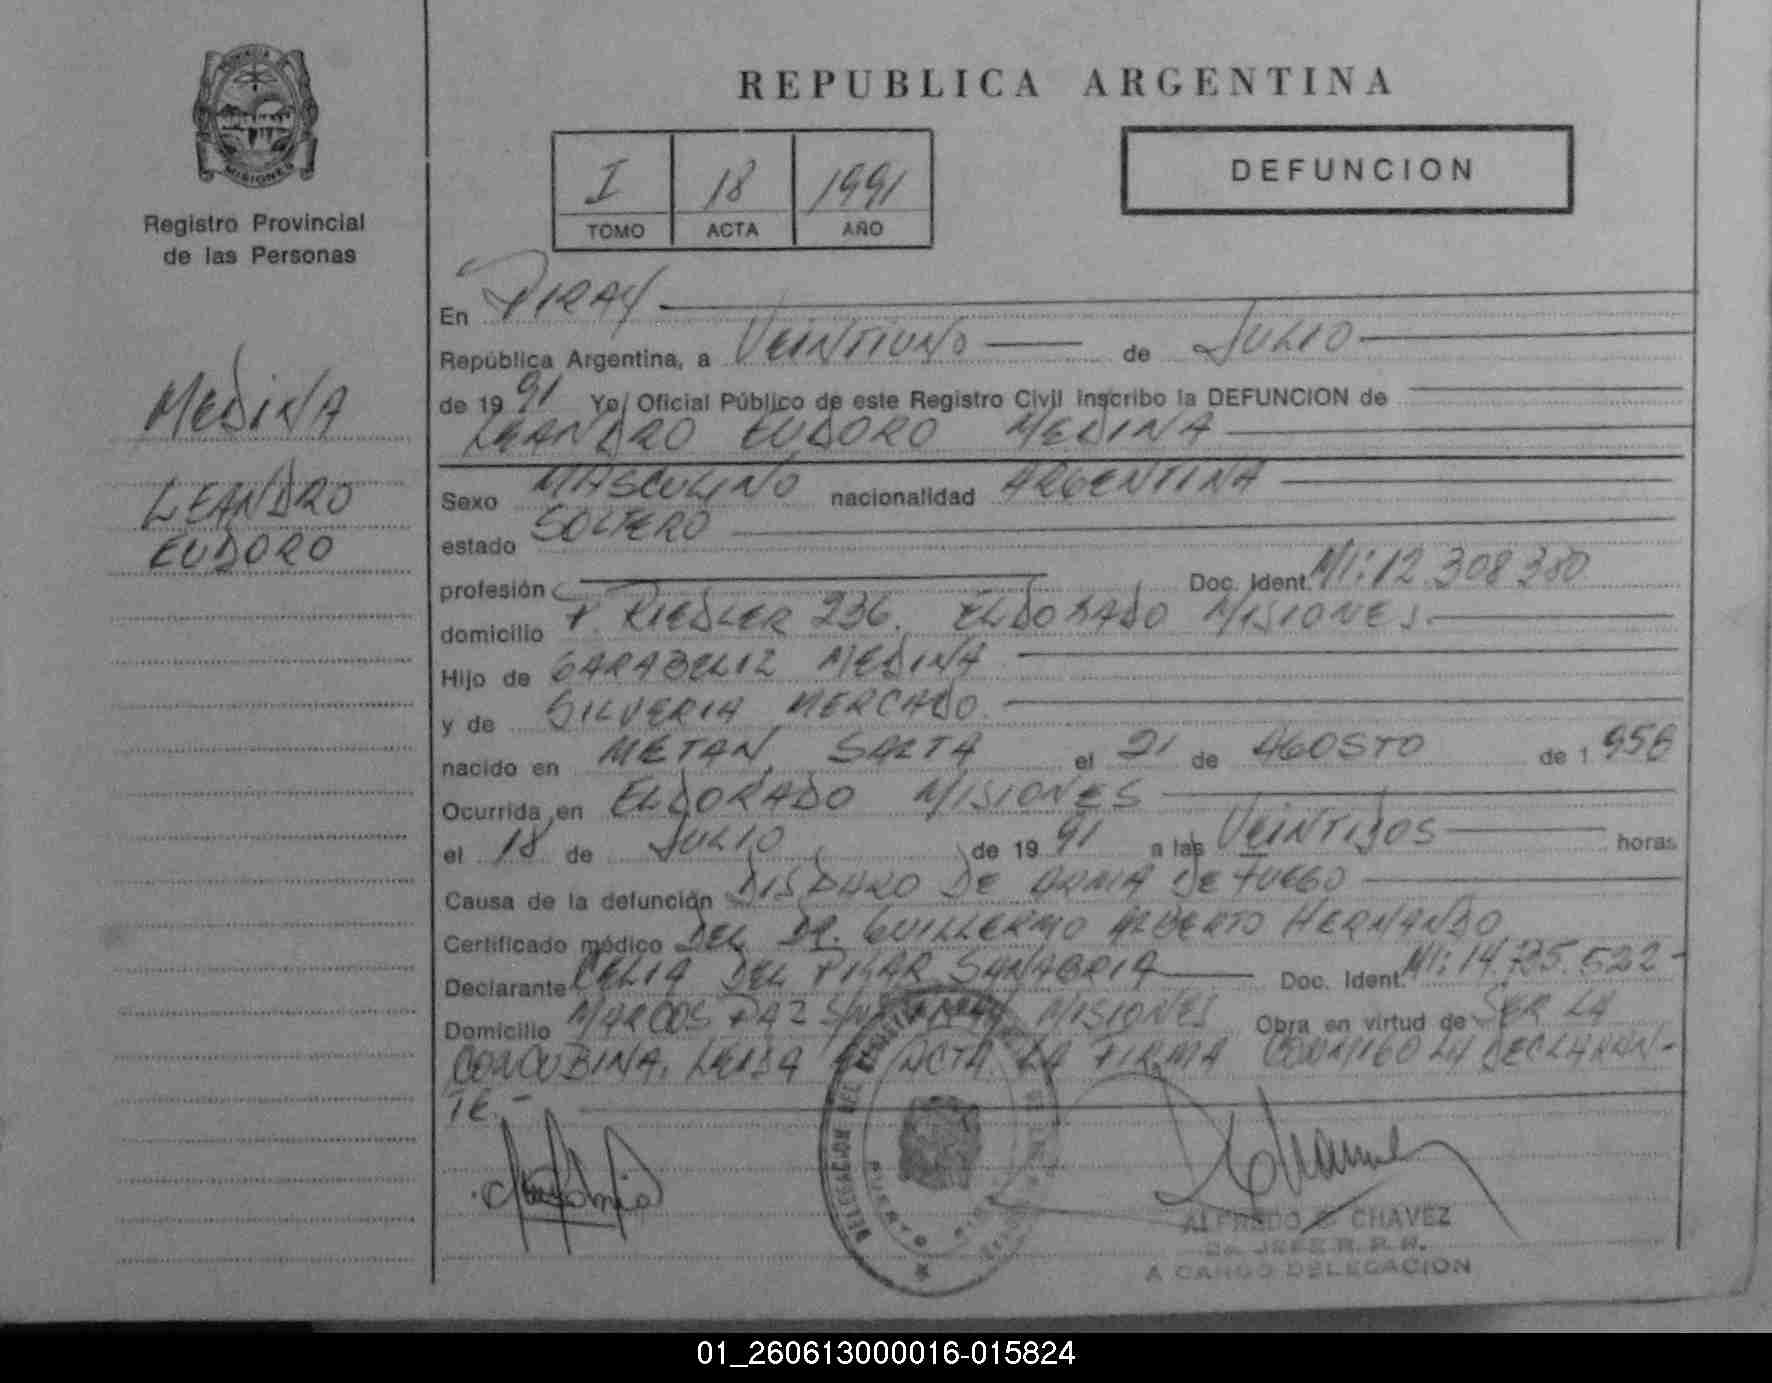 PROVINCIA
MISIONES
Registro Provincial
de las Personas
MEDINA
LEANDRO
EUDORO
REPUBLICA ARGENTINA
I 18 1991
TOMO ACTA AÑO
DEFUNCION
En PIRAY
República Argentina, a VEINTIUNO de JULIO
de 1991 Yo, Oficial Público de este Registro Civil inscribo la DEFUNCION de
LEANDRO EUDORO MEDINA
Sexo MASCULINO nacionalidad ARGENTINA
estado SOLTERO
profesión Doc. Ident. MI: 12.308.380
domicilio P. RIEDLER 236. ELDORADO MISIONES.
Hijo de GARABELIZ MEDINA
y de SILVERIA MERCADO.
nacido en METAN, SALTA el 21 de AGOSTO de 1.956
Ocurrida en ELDORADO MISIONES
el 18 de JULIO de 1991 a las VEINTIDOS horas
Causa de la defunción DISPARO DE ARMA DE FUEGO
Certificado médico DEL DR. GUILLERMO ALBERTO HERNANDO
Declarante CELIA DEL PILAR SANABRIA Doc. Ident. MI: 14.735.522-
Domicilio MARCOS PAZ S/N MISIONES Obra en virtud de SER LA
CONCUBINA. LEIDA EL ACTA LA FIRMA CONMIGO LA DECLARAN-
TE.-
DELEGACION DEL REGISTRO
PUERTO PIRAY
ALFREDO CHAVEZ
JEFE R. P. P.
A CARGO DELEGACION
01_260613000016-015824